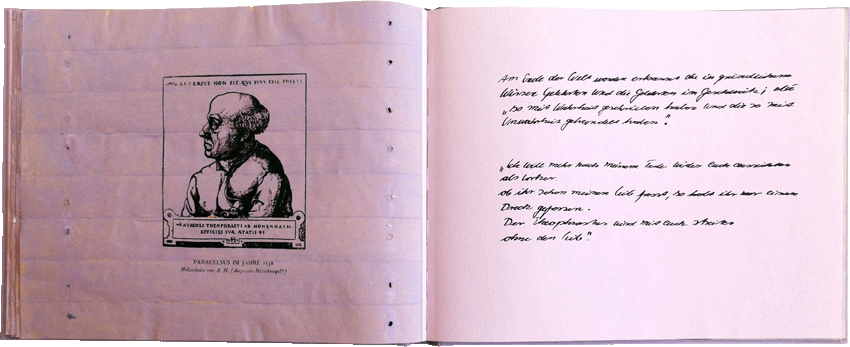 ALTERIUS NON SIT, QUI SUUS ESSE POTEST
AVREOLI THEOPHRASTI AB HOHENHAIM.
EFFIGIES SVÆ ÆTATIS 45
PARACELSUS IM JAHRE 1538
Holzschnitt von A. H. (Augustin Hirschvogel?)
Am Ende der Welt werden erkannt die in gründlichem
Wissen Gelehrten und die Gelehrten im Geschwätz; also
„so mit Wahrheit geschrieben haben und die so mit
Unwahrheit gehandelt haben".
„Ich will mehr nach meinem Tode wider Euch ausrichten
als vorher.
Ob ihr schon meinen Leib fresst, so habt ihr nur einen
Dreck gefressen.
Der Theophrastus wird mit Euch streiten
ohne den Leib".